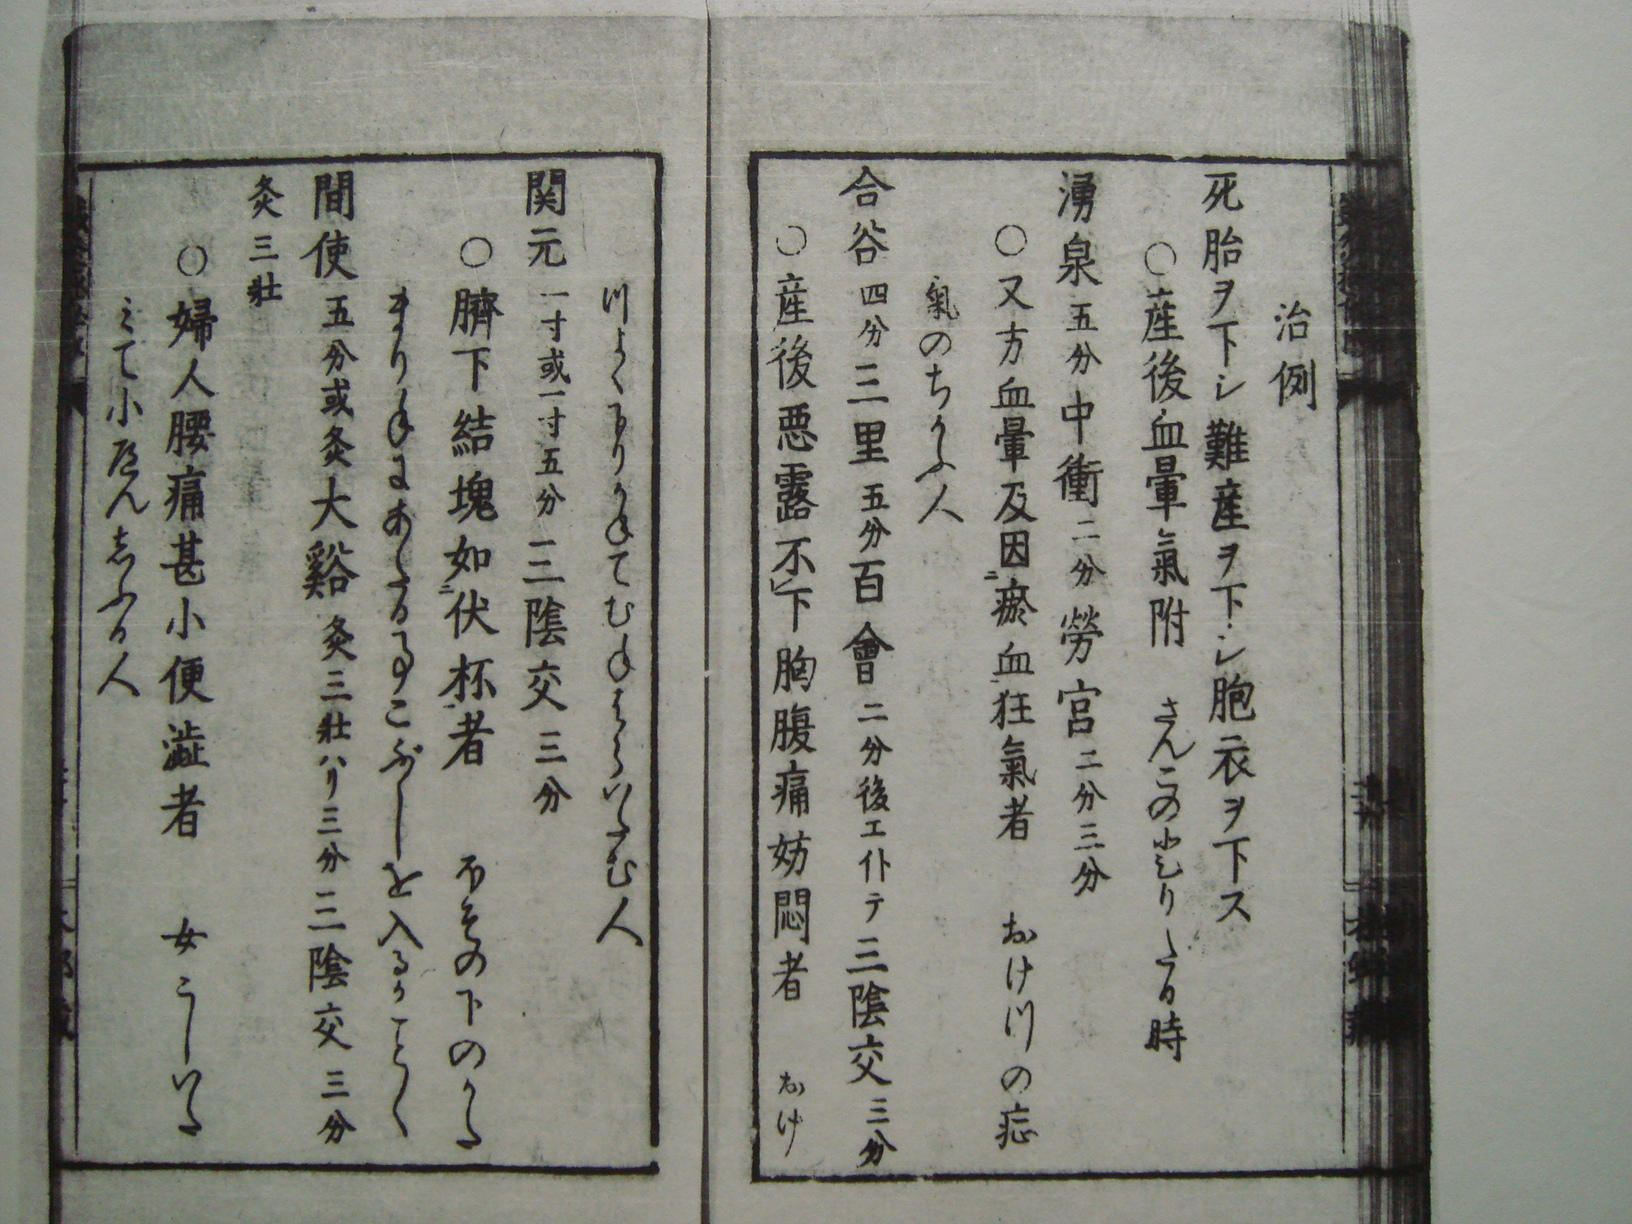 治例
死胎ヲ下シ難産ヲ下シ胞衣ヲ下ス
○産後血暈氣附 さんこののぼりたる時
湧泉五分中衝二分勞宮二分三分
○又方血暈及因瘀血狂氣者 おけ川の症
氣のちかふ人
合谷四分三里五分百會二分後エ仆テ三陰交三分
○産後悪露不下胸腹痛妨悶者 おけ
川よくおりかねてむねはらいたむ人
関元一寸或一寸五分三陰交三分
○臍下結塊如伏杯者 ほその下のかた
まりてにあたる事こぶしを入るかことく
間使五分或灸大谿灸三壯ハリ三分三陰交三分
灸三壯
○婦人腰痛甚小便澁者 女こしいた
みて小べんしふる人